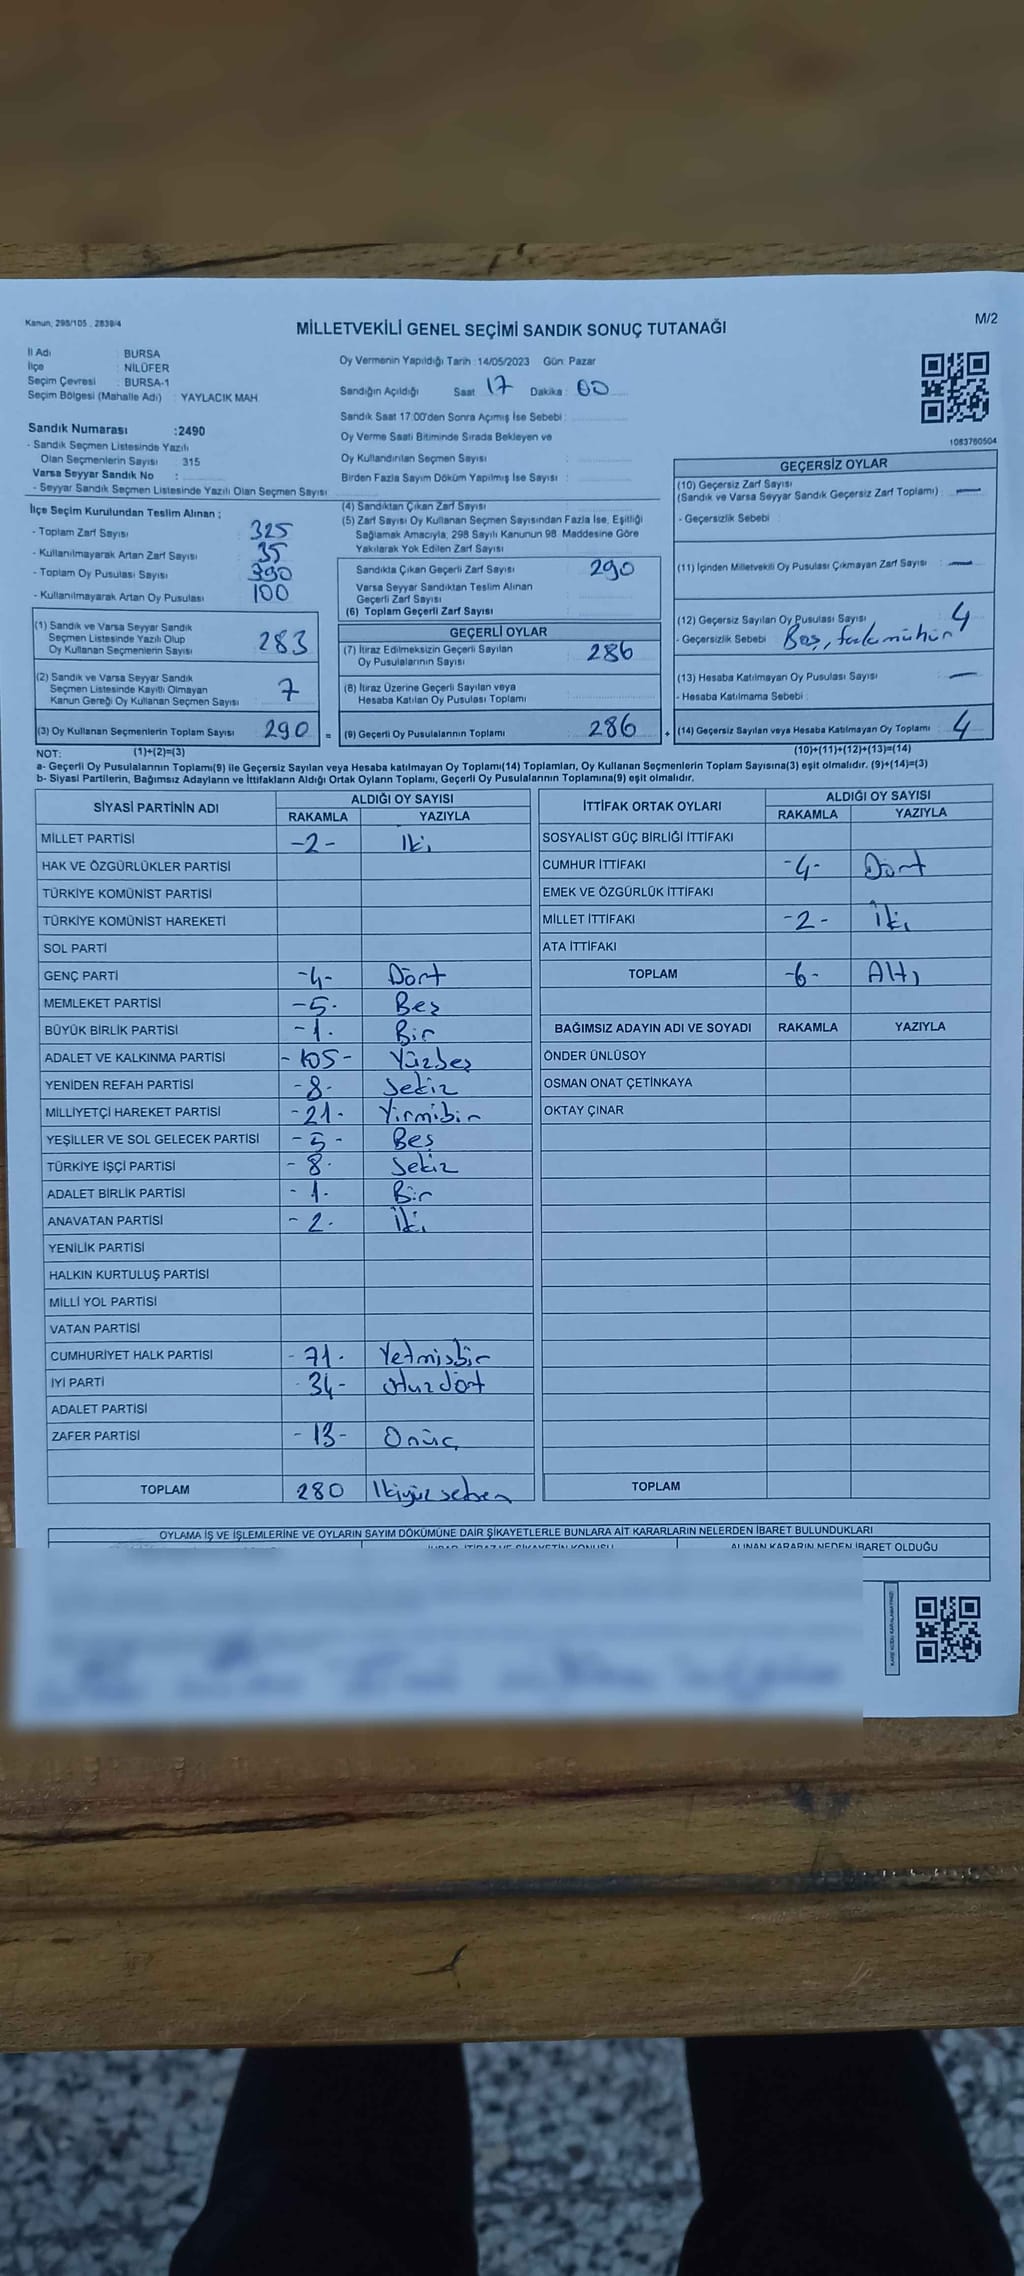 Kanun; 298/105 , 2839/4
MİLLETVEKİLİ GENEL SEÇİMİ SANDIK SONUÇ TUTANAĞI
M/2
İl Adı : BURSA
İlçe : NİLÜFER
Seçim Çevresi : BURSA-1
Seçim Bölgesi (Mahalle Adı) : YAYLACIK MAH.
Sandık Numarası :2490
- Sandık Seçmen Listesinde Yazılı
Olan Seçmenlerin Sayısı : 315
Varsa Seyyar Sandık No :
- Seyyar Sandık Seçmen Listesinde Yazılı Olan Seçmen Sayısı :
Oy Vermenin Yapıldığı Tarih :14/05/2023 Gün: Pazar
Sandığın Açıldığı Saat : 17 Dakika : 00
Sandık Saat 17:00'den Sonra Açımış İse Sebebi :
Oy Verme Saati Bitiminde Sırada Bekleyen ve
Oy Kullandırılan Seçmen Sayısı :
Birden Fazla Sayım Döküm Yapılmış İse Sayısı :
1083760504
İlçe Seçim Kurulundan Teslim Alınan ;
- Toplam Zarf Sayısı : 325
- Kullanılmayarak Artan Zarf Sayısı : 35
- Toplam Oy Pusulası Sayısı : 390
- Kullanılmayarak Artan Oy Pusulası : 100
(1) Sandık ve Varsa Seyyar Sandık
Seçmen Listesinde Yazılı Olup
Oy Kullanan Seçmenlerin Sayısı : 283
(2) Sandık ve Varsa Seyyar Sandık
Seçmen Listesinde Kayıtlı Olmayan
Kanun Gereği Oy Kullanan Seçmen Sayısı : 7
(3) Oy Kullanan Seçmenlerin Toplam Sayısı : 290 =
(4) Sandıktan Çıkan Zarf Sayısı :
(5) Zarf Sayısı Oy Kullanan Seçmen Sayısından Fazla İse, Eşitliği
Sağlamak Amacıyla, 298 Sayılı Kanunun 98. Maddesine Göre
Yakılarak Yok Edilen Zarf Sayısı :
Sandıkta Çıkan Geçerli Zarf Sayısı : 290
Varsa Seyyar Sandıktan Teslim Alınan
Geçerli Zarf Sayısı :
(6) Toplam Geçerli Zarf Sayısı :
GEÇERLİ OYLAR
(7) İtiraz Edilmeksizin Geçerli Sayılan
Oy Pusulalarının Sayısı : 286
(8) İtiraz Üzerine Geçerli Sayılan veya
Hesaba Katılan Oy Pusulası Toplamı :
(9) Geçerli Oy Pusulalarının Toplamı : 286 +
GEÇERSİZ OYLAR
(10) Geçersiz Zarf Sayısı
(Sandık ve Varsa Seyyar Sandık Geçersiz Zarf Toplamı) : —
- Geçersizlik Sebebi :
(11) İçinden Milletvekili Oy Pusulası Çıkmayan Zarf Sayısı : —
(12) Geçersiz Sayılan Oy Pusulası Sayısı : 4
- Geçersizlik Sebebi : Boş, fazla mühür
(13) Hesaba Katılmayan Oy Pusulası Sayısı : —
- Hesaba Katılmama Sebebi :
(14) Geçersiz Sayılan veya Hesaba Katılmayan Oy Toplamı : 4
NOT: (1)+(2)=(3) (10)+(11)+(12)+(13)=(14)
a- Geçerli Oy Pusulalarının Toplamı(9) ile Geçersiz Sayılan veya Hesaba katılmayan Oy Toplamı(14) Toplamları, Oy Kullanan Seçmenlerin Toplam Sayısına(3) eşit olmalıdır. (9)+(14)=(3)
b- Siyasi Partilerin, Bağımsız Adayların ve İttifakların Aldığı Ortak Oyların Toplamı, Geçerli Oy Pusulalarının Toplamına(9) eşit olmalıdır.
SİYASİ PARTİNİN ADI ALDIĞI OY SAYISI
RAKAMLA YAZIYLA
MİLLET PARTİSİ -2- İki
HAK VE ÖZGÜRLÜKLER PARTİSİ
TÜRKİYE KOMÜNİST PARTİSİ
TÜRKİYE KOMÜNİST HAREKETİ
SOL PARTİ
GENÇ PARTİ -4- Dört
MEMLEKET PARTİSİ -5- Beş
BÜYÜK BİRLİK PARTİSİ -1- Bir
ADALET VE KALKINMA PARTİSİ -105- Yüzbeş
YENİDEN REFAH PARTİSİ -8- Sekiz
MİLLİYETÇİ HAREKET PARTİSİ -21- Yirmibir
YEŞİLLER VE SOL GELECEK PARTİSİ -5- Beş
TÜRKİYE İŞÇİ PARTİSİ -8- Sekiz
ADALET BİRLİK PARTİSİ -1- Bir
ANAVATAN PARTİSİ -2- İki
YENİLİK PARTİSİ
HALKIN KURTULUŞ PARTİSİ
MİLLİ YOL PARTİSİ
VATAN PARTİSİ
CUMHURİYET HALK PARTİSİ -71- Yetmişbir
İYİ PARTİ -34- otuzdört
ADALET PARTİSİ
ZAFER PARTİSİ -13- Onüç
TOPLAM 280 İkiyüz seksen
İTTİFAK ORTAK OYLARI ALDIĞI OY SAYISI
RAKAMLA YAZIYLA
SOSYALİST GÜÇ BİRLİĞİ İTTİFAKI
CUMHUR İTTİFAKI -4- Dört
EMEK VE ÖZGÜRLÜK İTTİFAKI
MİLLET İTTİFAKI -2- İki
ATA İTTİFAKI
TOPLAM -6- Altı
BAĞIMSIZ ADAYIN ADI VE SOYADI RAKAMLA YAZIYLA
ÖNDER ÜNLÜSOY
OSMAN ONAT ÇETİNKAYA
OKTAY ÇINAR
TOPLAM
OYLAMA İŞ VE İŞLEMLERİNE VE OYLARIN SAYIM DÖKÜMÜNE DAİR ŞİKAYETLERLE BUNLARA AİT KARARLARIN NELERDEN İBARET BULUNDUKLARI
ALINAN KARARIN NEDEN İBARET OLDUĞU